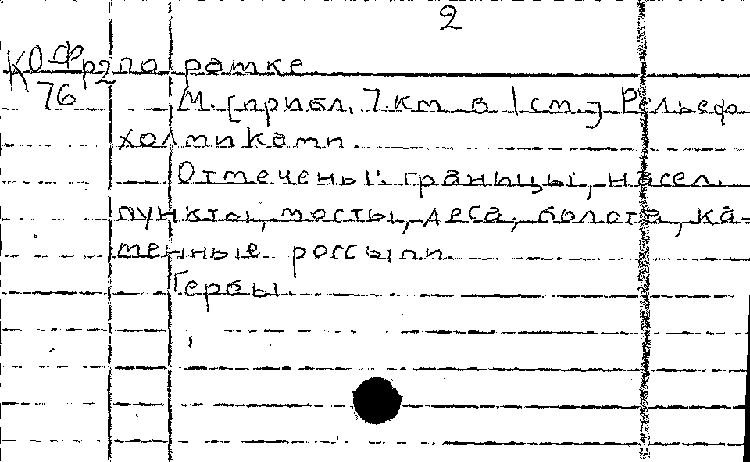 2
КО Фр2 по рамке.
76 М. [прибл. 7 км в 1 см.] Рельеф
холмиками.
Отмечены: границы, насел.
пункты, мосты, леса, болота, ка-
менные россыпи.
Гербы.